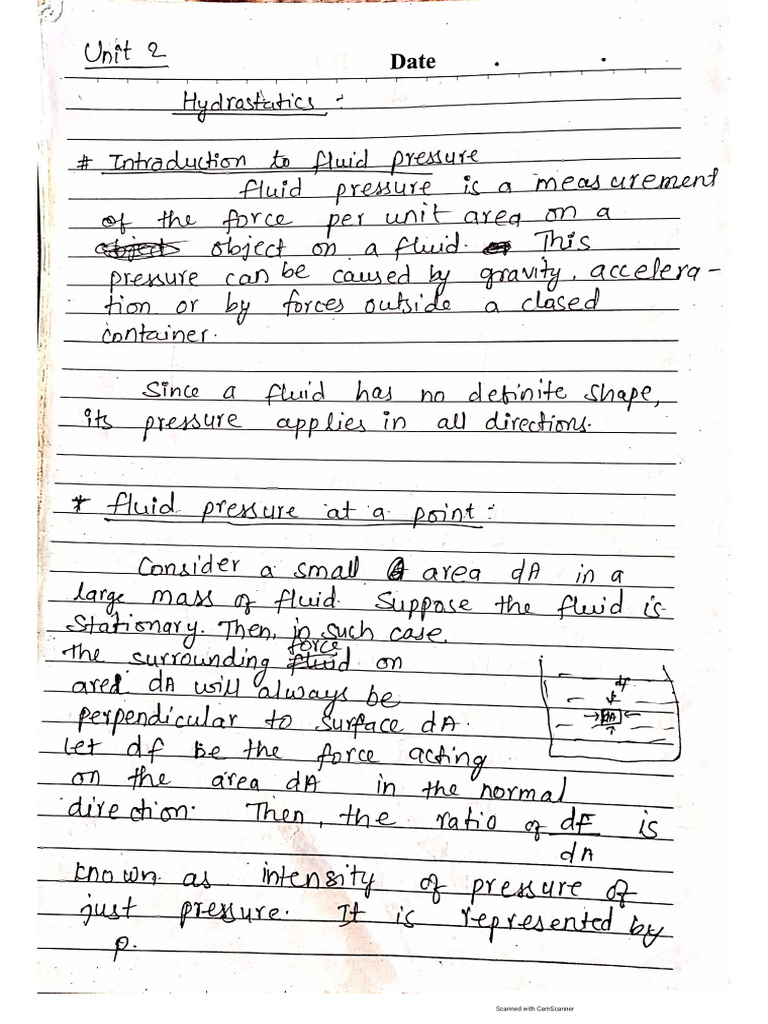 Unit 2
Date
Hydrastatics :-
# Introduction to fluid pressure
fluid pressure is a measurement
of the force per unit area on a
object on a fluid. This
pressure can be caused by gravity, accelera-
tion or by forces outside a closed
container.
Since a fluid has no definite shape,
its pressure applies in all directions.
* fluid pressure at a point :-
Consider a small area dA in a
large mass of fluid. Suppose the fluid is
Stationary. Then, in such case.
the surrounding force on
area dA will always be
perpendicular to surface dA.
Let df be the force acting
on the area dA in the normal
direction. Then, the ratio of dF is
dA
known as intensity of pressure of
just pressure. It is represented by
p.
df
dA
Scanned with CamScanner